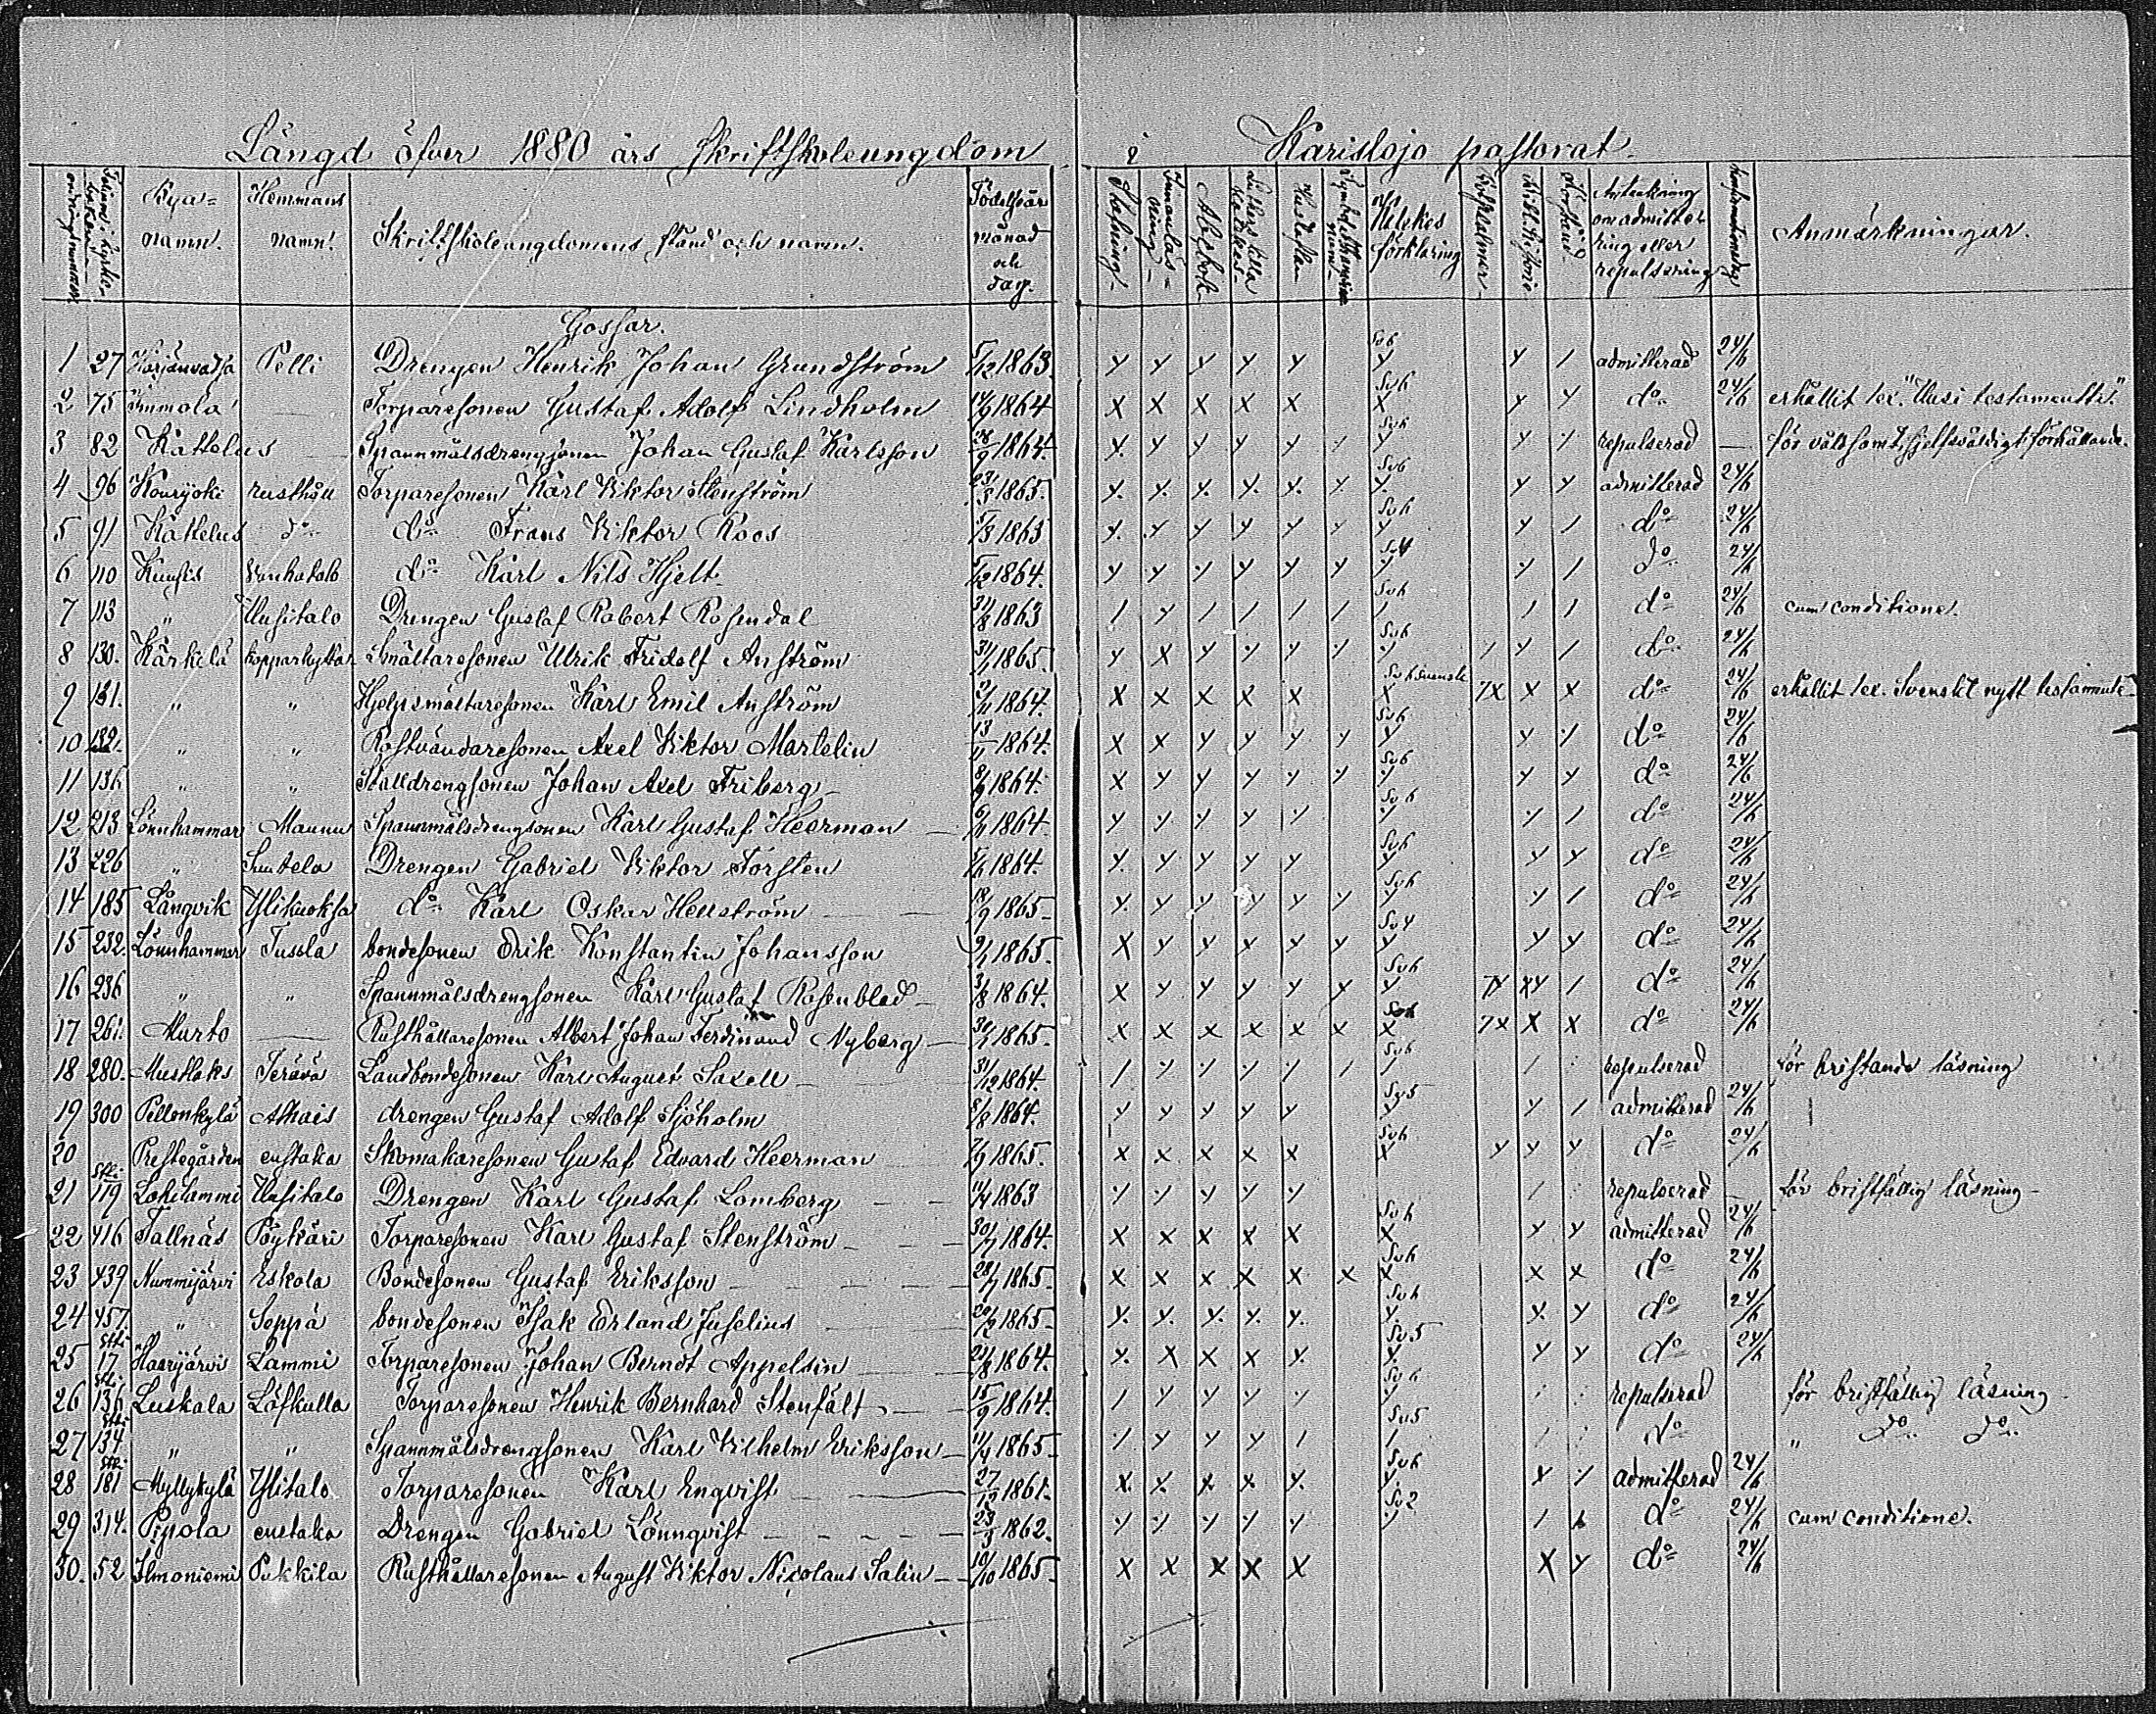 Längd öfver 1880 års skriftskoleungdom i Karislojo pastorat.
Bya-namn. Hemmans namn. Skriftskoleungdomens stånd och namn. Födelseår månad och dag. Stafning Innanläsning Abcbok Luthers lilla katekes Hustaflan Symbol. Athanasian. Kateches förklaring Botpsalmer Bibl. historie Förstånd Anteckning om admittering eller repulsering Anmärkningar.
Gossar.
1 27 Karjanvatsa Pelli Drengen Henrik Johan Grundström 5/12 1863. y y y y y Sv6 y y / admitterad 24/6
2 75 Immola — Torparesonen Gustaf Adolf Lindholm 1864 x x x x x Sv6 x y y do 24/6 erhållit 1 ex. "Uusi testamentti".
3 82 Kattelus Spannmålsdrengsonen Johan Gustaf Karlsson 28/9 1864. repulserad — för våldsamt, sjelfsvåldigt förhållande.
4 96 Kourjoki rusthåll Torparesonen Karl Viktor Stenström 23/3 1865. Sv6 admitterad 24/6
5 91 Kattelus do do Frans Viktor Roos 5/3 1865 Sv6 do 24/6
6 110 Kuusis Vanhatalo do Karl Nils Hjelt 5/12 1864. Sv4 do 24/6
7 113 " Uusitalo Drengen Gustaf Robert Rosendal 31/8 1863 Sv6 do 24/6 cum conditione.
8 130. Kärkelä kopparhyttan Smältaresonen Ulrik Fridolf Anström 31/1 1865. Sv6 do 24/6
9 131. " " Hjelpsmältaresonen Karl Emil Anström 2/11 1864. x x x x x Sv6 svensk x 7x x x do 24/6 erhållit 1 ex. Svenskt nytt testamente
10 132. " " Rostvändaresonen Axel Viktor Martelin 13/11 1864. Sv6 do 24/6
11 136 " " Stalldrengsonen Johan Axel Friberg 1864. Sv6 do 24/6
12 213 Lönnhammar Maunu Spannmålsdrengsonen Karl Gustaf Heerman 6/11 1864. Sv6 do 24/6
13 226 " Suutela Drengen Gabriel Viktor Forsten 1864. Sv6 do 24/6
14 185 Långvik Ylikuoksa do Karl Oskar Hellström 18/9 1865 Sv6 do 24/6
15 232. Lönnhammar Tussla bondesonen Erik Konstantin Johansson 9/1 1865. Sv4 do 24/6
16 236 " " Spannmålsdrengsonen Karl Gustaf Rosenblad 3/8 1864. Sv6 do 24/6
17 261. Murto — Rusthållaresonen Albert Johan Ferdinand Nyberg 30/1 1865. x x x x x x Sv6 x 7x x x do 24/6
18 280. Mustlaks Terävä Landbondesonen Karl August Saxell 31/12 1864. Sv6 repulserad för bristande läsning
19 300 Pellonkylä Anais drengen Gustaf Adolf Sjöholm 8/8 1864. Sv5 admitterad 24/6
20 Prestegården enstaka Skomakaresonen Gustaf Edvard Heerman 7/9 1865. x x x x x Sv6 x y y y do 24/6
21 119 Lohilammi Uusitalo Drengen Karl Gustaf Lomberg 11/4 1863 repulserad — för bristfällig läsning
22 416 Tallnäs Pöykäri Torparesonen Karl Gustaf Stenström 30/7 1864. x x x x x Sv6 x y y admitterad 24/6
23 439 Nummijärvi Eskola Bondesonen Gustaf Eriksson 28/7 1865 x x x x x x Sv6 x x x do 24/6
24 457. " Seppä bondesonen Isak Erland Juselius 29/12 1865 Sv6 do 24/6
25 17 Haarijärvi Lammi Torparesonen Johan Berndt Appelsin 24/8 1864. Sv5 do 24/6
26 136 Luskala Löfkulla Torparesonen Henrik Bernhard Stenfält 15/9 1864. Sv6 repulserad för bristfällig läsning
27 134 " " Spannmålsdrengsonen Karl Vilhelm Eriksson 11/4 1865 Sv5 do " do do
28 181 Myllykylä Ylitalo Torparesonen Karl Engvist 27/12 1861. Sv6 admitterad 24/6
29 314. Pipola enstaka Drengen Gabriel Lönnqvist 23/3 1862. Sv2 do 24/6 cum conditione.
30. 52 Ilmoniemi Pukkila Rusthållaresonen August Viktor Nicolaus Salin 10/10 1865 x x x x x x y do 24/6